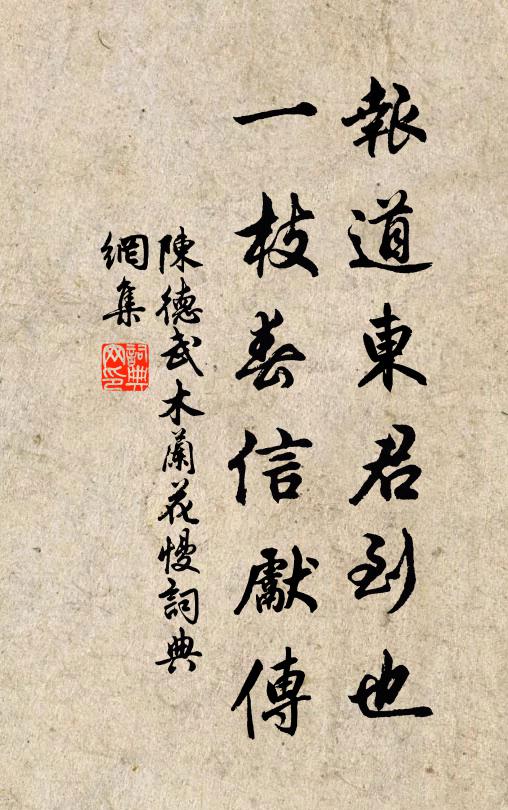 報道東君到也
一枝春信獻傳
陳德武木蘭花慢詞典
網集
詞典網印